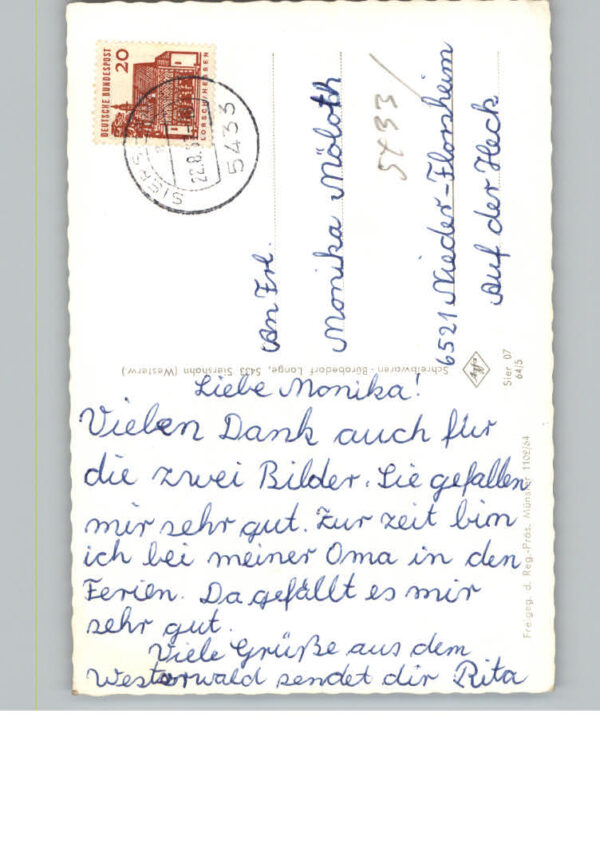 Liebe Monika!
Vielen Dank auch für
die zwei Bilder. Sie gefallen
mir sehr gut. Zur zeit bin
ich bei meiner Oma in den
Ferien. Da gefällt es mir
sehr gut.
Viele Grüße aus dem
Westerwald sendet dir Rita
An Frl.
Monika Möloth
6521 Nieder-Florsheim
Auf der Heck
5433
DEUTSCHE BUNDESPOST
20
LORSCH/HESSEN
22.8.
5433
Schreibwaren - Bürobedarf Lange, 5433 Siershahn (Westerw.)
Agfa
Sier. 07
64/5
Freigeg. d. Reg.-Präs. Münster 1102/64